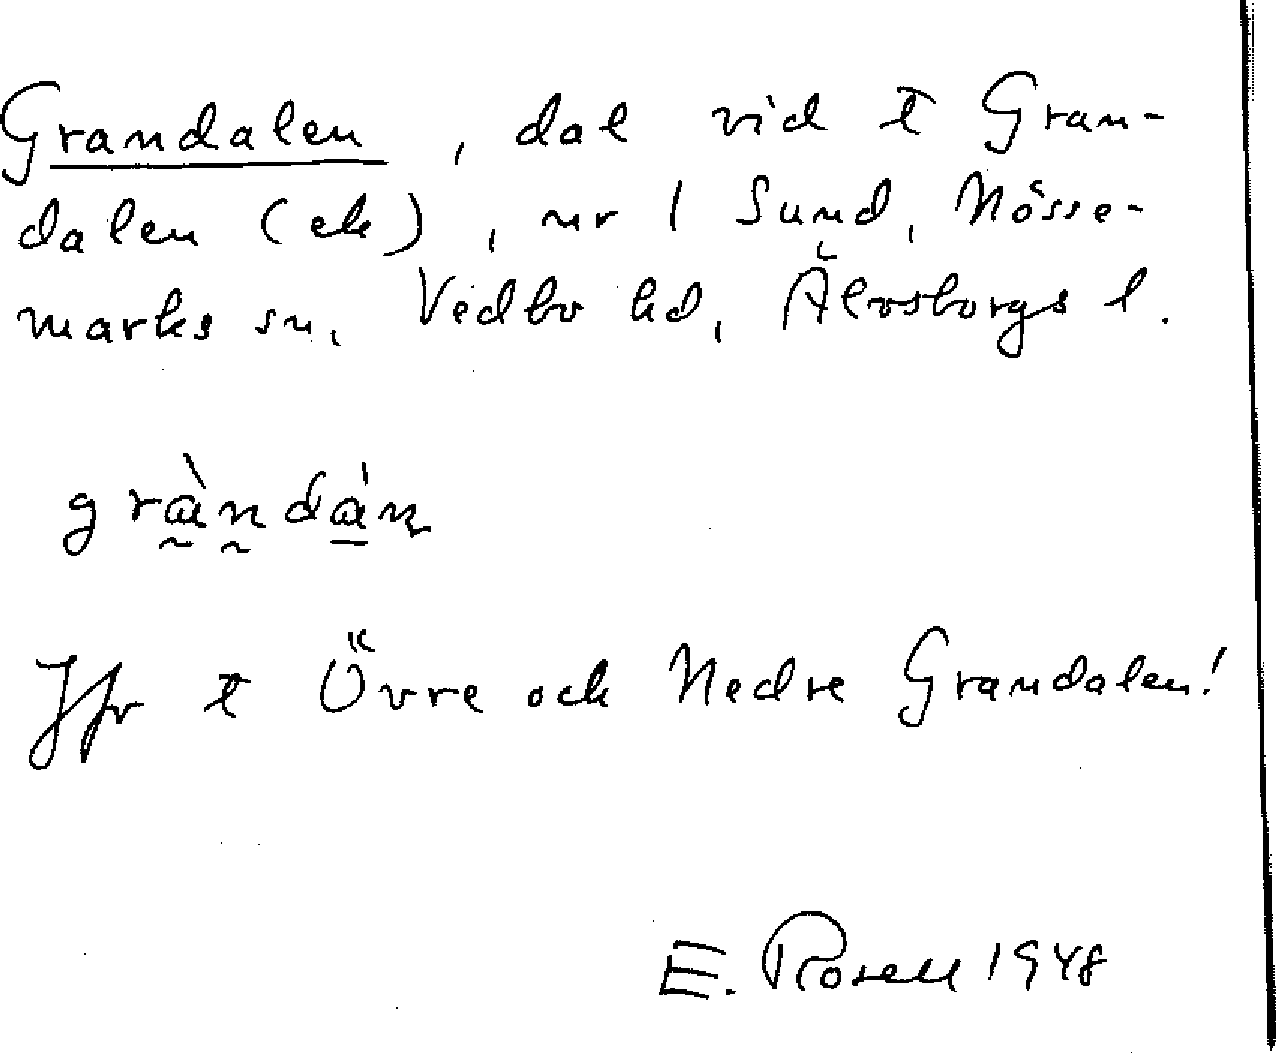 Grandalen, dal vid t Gran-
dalen (ek), nr 1 Sund, Nösse-
marks sn, Vedbo hd, Älvsborgs l.
gràndán
Jfr t Övre och Nedre Grandalen!
E. Rosell 1948